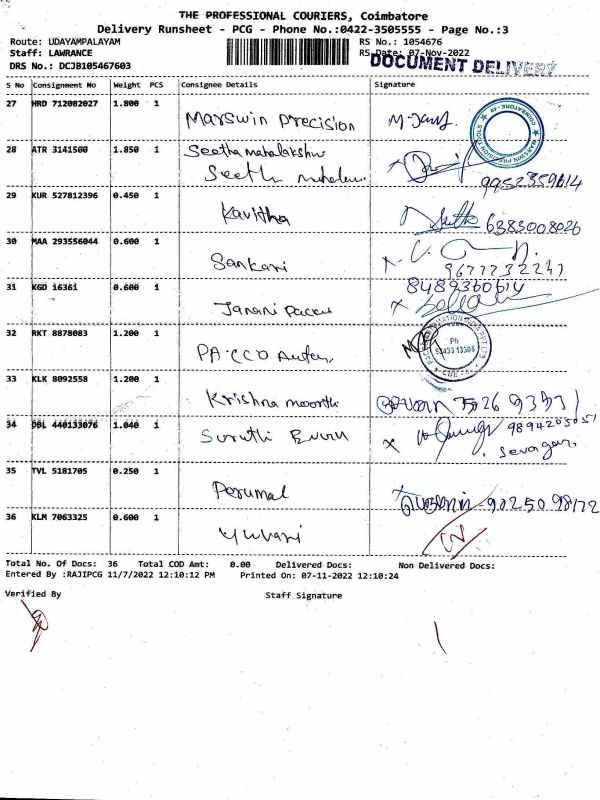 THE PROFESSIONAL COURIERS, Coimbatore
Delivery Runsheet - PCG - Phone No.:0422-3505555 - Page No.:3
Route: UDAYAMPALAYAM RS No.: 1054676
Staff: LAWRANCE RS Date: 07-Nov-2022
DRS No.: DCJB105467603 DOCUMENT DELIVERY
S No Consignment No Weight PCS Consignee Details Signature
27 HRD 712082027 1.800 1 Marswin Precision
28 ATR 3141500 1.850 1 Seetha mahalakshmi
9952359614
29 KUR 527812396 0.450 1 Kavitha 6383008026
30 MAA 293556044 0.600 1 Sankari
9677732247
31 KGD 16361 0.600 1 Janani 8489360614
32 RKT 8878083 1.200 1 PACCO
33 KLK 8092558 1.200 1 Krishna moorthi
34 DBL 440133076 1.040 1 Suruthi
35 TVL 5181705 0.250 1 Perumal
36 KLM 7063325 0.600 1 Yuvani
Total No. Of Docs: 36 Total COD Amt: 0.00 Delivered Docs: Non Delivered Docs:
Entered By :RAJIPCG 11/7/2022 12:10:12 PM Printed On: 07-11-2022 12:10:24
Verified By Staff Signature